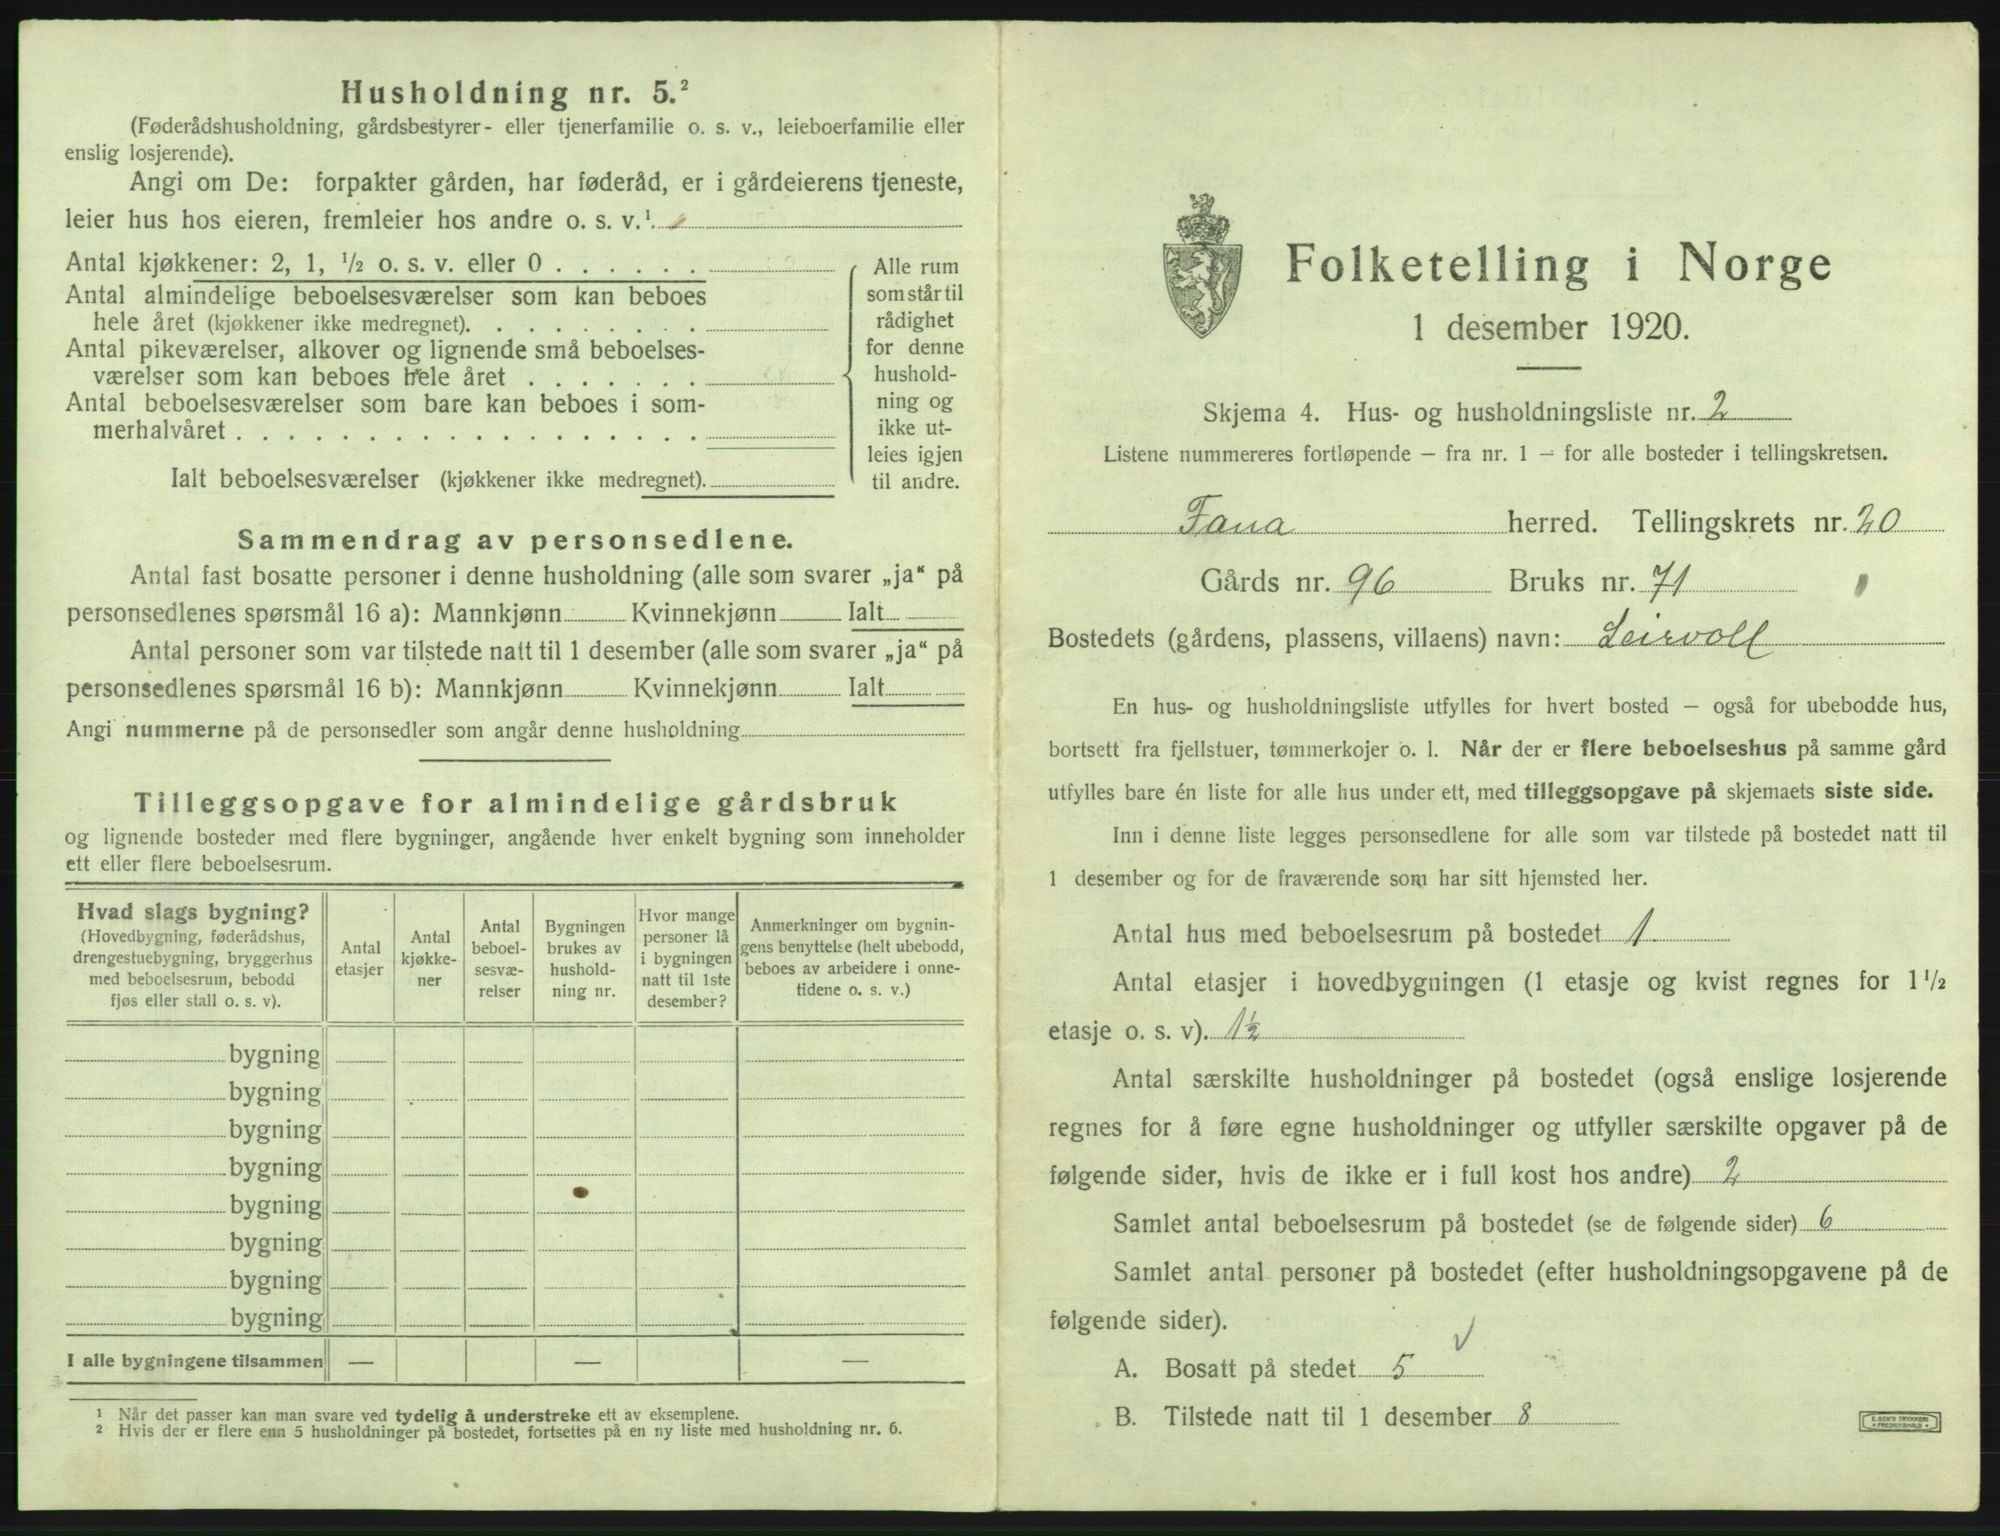 Husholdning nr. 5.²
(Føderådshusholdning, gårdsbestyrer- eller tjenerfamilie o. s. v., leieboerfamilie eller
enslig losjerende).
Angi om De: forpakter gården, har føderåd, er i gårdeierens tjeneste,
leier hus hos eieren, fremleier hos andre o. s. v.¹
Antal kjøkkener: 2, 1, ½ o. s. v. eller 0
Antal almindelige beboelsesværelser som kan beboes
hele året (kjøkkener ikke medregnet).
Antal pikeværelser, alkover og lignende små beboelses-
værelser som kan beboes hele året
Antal beboelsesværelser som bare kan beboes i som-
merhalvåret
Ialt beboelsesværelser (kjøkkener ikke medregnet).
Alle rum
som står til
rådighet
for denne
hushold-
ning og
ikke ut-
leies igjen
til andre.
Sammendrag av personsedlene.
Antal fast bosatte personer i denne husholdning (alle som svarer „ja“ på
personsedlenes spørsmål 16 a): Mannkjønn Kvinnekjønn Ialt
Antal personer som var tilstede natt til 1 desember (alle som svarer „ja“ på
personsedlenes spørsmål 16 b): Mannkjønn Kvinnekjønn Ialt
Angi nummerne på de personsedler som angår denne husholdning
Tilleggsopgave for almindelige gårdsbruk
og lignende bosteder med flere bygninger, angående hver enkelt bygning som inneholder
ett eller flere beboelsesrum.
Hvad slags bygning?
(Hovedbygning, føderådshus,
drengestuebygning, bryggerhus
med beboelsesrum, bebodd
fjøs eller stall o. s. v).
Antal
etasjer
Antal
kjøkke-
ner
Antal
beboel-
sesvæ-
relser
Bygningen
brukes av
hushold-
ning nr.
Hvor mange
personer lå
i bygningen
natt til 1ste
desember?
Anmerkninger om bygnin-
gens benyttelse (helt ubebodd,
beboes av arbeidere i onne-
tidene o. s. v.)
bygning
bygning
bygning
bygning
bygning
bygning
bygning
bygning
I alle bygningene tilsammen — — —
¹ Når det passer kan man svare ved tydelig å understreke ett av eksemplene.
² Hvis der er flere enn 5 husholdninger på bostedet, fortsettes på en ny liste med husholdning nr. 6.
Folketelling i Norge
1 desember 1920.
Skjema 4. Hus- og husholdningsliste nr. 2
Listene nummereres fortløpende — fra nr. 1 — for alle bosteder i tellingskretsen.
Fana herred. Tellingskrets nr. 20
Gårds nr. 96 Bruks nr. 71
Bostedets (gårdens, plassens, villaens) navn: Leirvoll
En hus- og husholdningsliste utfylles for hvert bosted — også for ubebodde hus,
bortsett fra fjellstuer, tømmerkojer o. l. Når der er flere beboelseshus på samme gård
utfylles bare én liste for alle hus under ett, med tilleggsopgave på skjemaets siste side.
Inn i denne liste legges personsedlene for alle som var tilstede på bostedet natt til
1 desember og for de fraværende som har sitt hjemsted her.
Antal hus med beboelsesrum på bostedet 1
Antal etasjer i hovedbygningen (1 etasje og kvist regnes for 1½
etasje o. s. v). 1½
Antal særskilte husholdninger på bostedet (også enslige losjerende
regnes for å føre egne husholdninger og utfyller særskilte opgaver på de
følgende sider, hvis de ikke er i full kost hos andre) 2
Samlet antal beboelsesrum på bostedet (se de følgende sider) 6
Samlet antal personer på bostedet (efter husholdningsopgavene på de
følgende sider).
A. Bosatt på stedet 5 √
B. Tilstede natt til 1 desember 8
E. SEM'S TRYKKERI
FREDRIKSHALD